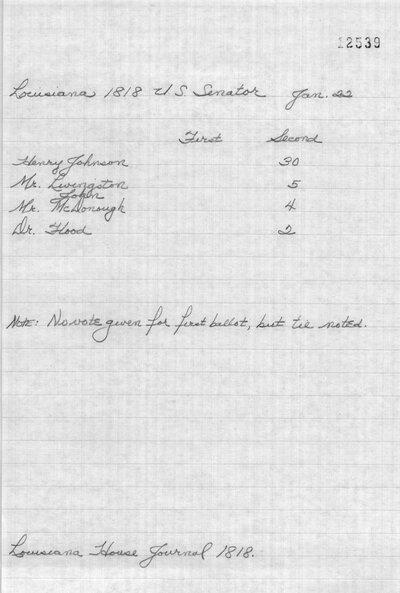 12539
Louisiana 1818 U.S. Senator Jan. 22
First Second
Henry Johnson 30
Mr. Livingston 5
John
Mr. McDonough 4
Dr. Flood 2
Note: No vote given for first ballot, but tie noted.
Louisiana House Journal 1818.